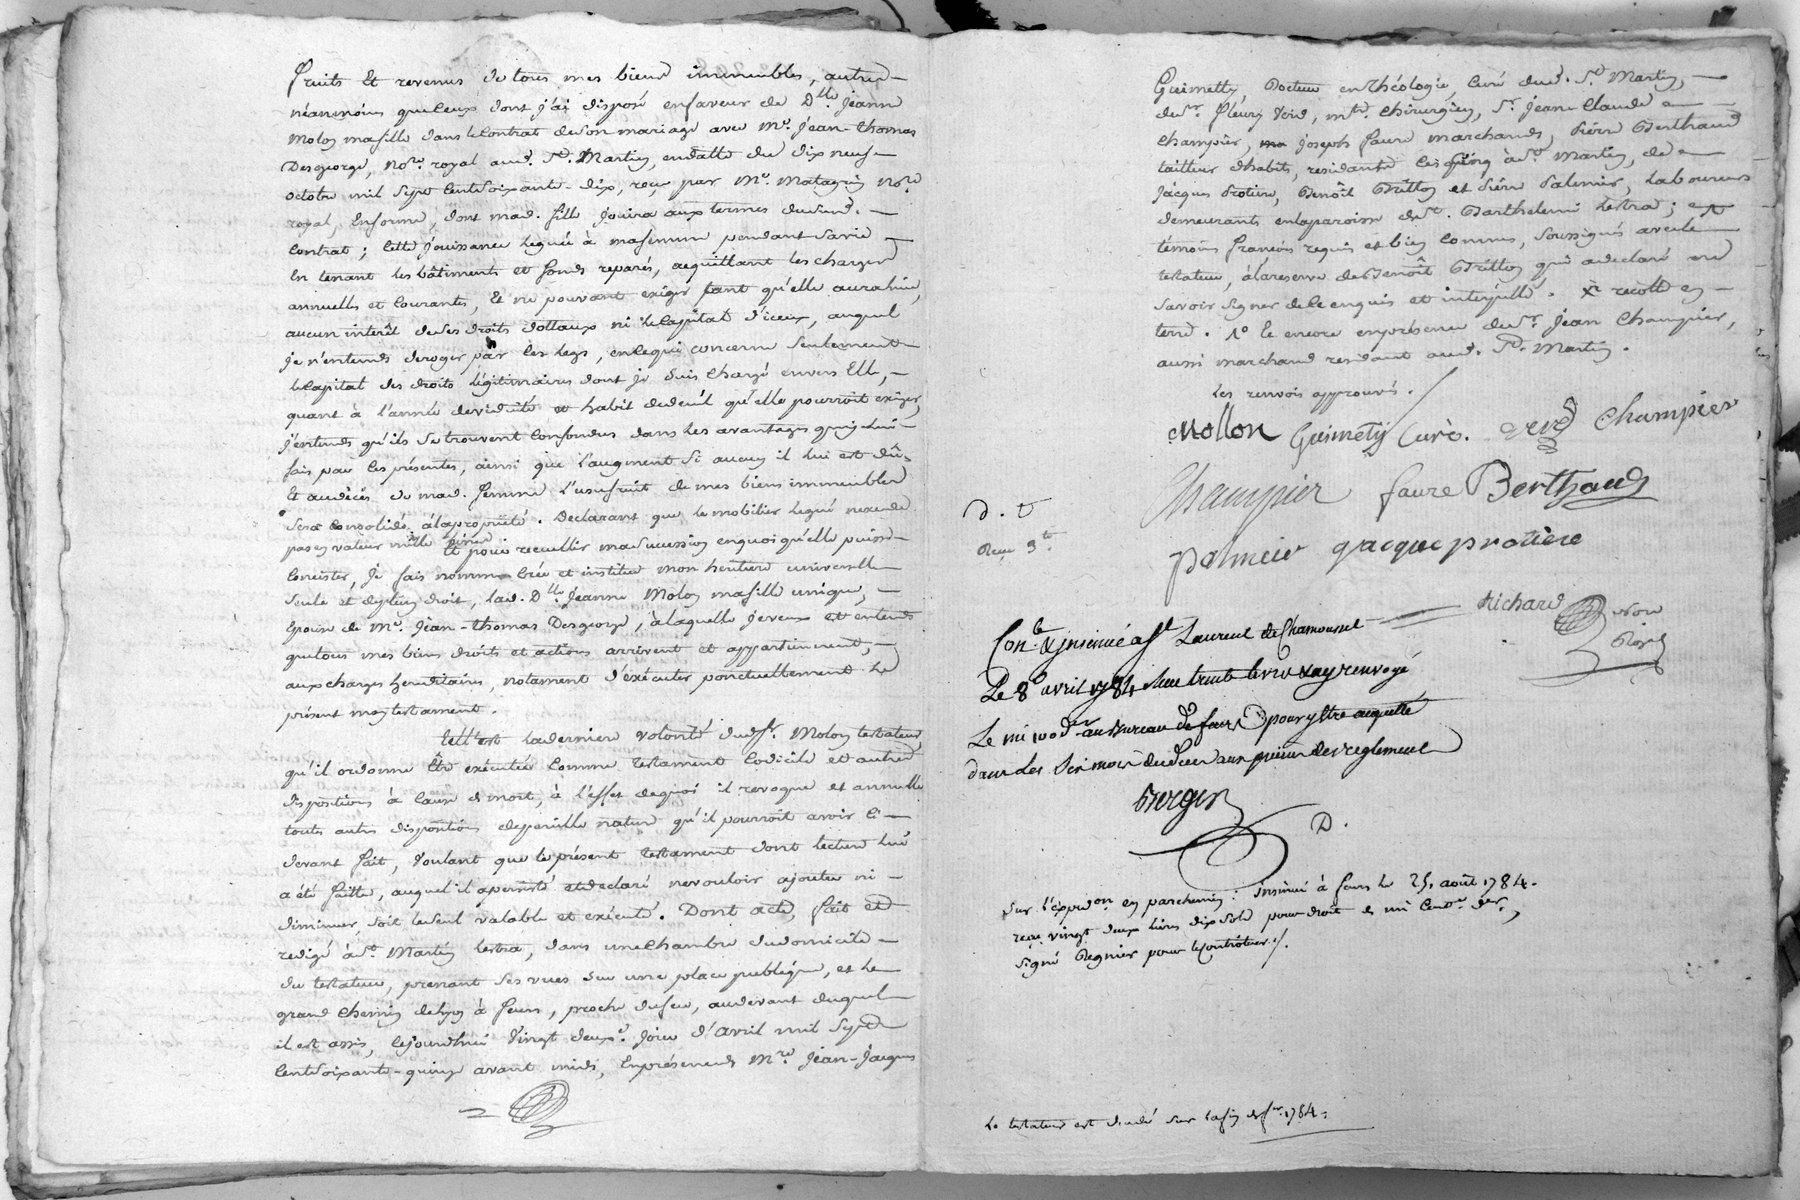 fruits et revenus de tous mes biens immeubles, autres
néanmoins que ceux dont j'ai disposé en faveur de D.lle Jeanne
Molon ma fille dans le contrat de son mariage avec M.e Jean-Thomas
Desgeorge, no.re royal aud. S.t Martin, en datte du dix neuf
octobre mil sept cent soixante-dix, reçu par M.e Matagrin no.re
royal, en forme, dont mad. fille jouira aux termes dud.
contrat ; cette jouissance leguée à ma femme pendant sa vie
en tenant les bâtiments et fonds reparés, acquittant les charges
annuelles et courantes, et ne pouvant exiger tant qu'elle aura lieu,
aucun interêt de ses droits dottaux ni le capital d'iceux, auquel
je n'entends deroger par les legs, en ce qui concerne seulement
le capital des droits légitimaires dont je suis chargé envers elle,
quant à l'année de viduité et habit de deuil qu'elle pourroit exiger,
j'entends qu'ils se trouvent confondus dans les avantages que je lui
fais par ces présentes, ainsi que l'augment si aucun il lui est dû
et au décès de mad. femme l'usufruit de mes biens immeubles
sera consolidé à la propriété. Declarant que le mobilier legué n'excede
pas en valeur mille livres et pour recueillir ma succession en quoi qu'elle puisse
consister, je fais nomme crée et institue mon heritiere universelle
seule et de plein droit, lad. D.lle Jeanne Molon ma fille unique,
épouse de M.e Jean-Thomas Desgeorge, à laquelle je veux et entends
que tous mes biens droits et actions arrivent et appartiennent,
aux charges hereditaires, notament d'exécuter ponctuellement le
présent mon testament.
Telle est la derniere volonté dud. Sr. Molon testateur
qu'il ordonne être exécutée comme testament codicile et autres
dispositions à cause de mort, à l'effet de quoi il revoque et annulle
toutes autres dispositions de pareille nature qu'il pourroit avoir ci
devant fait, voulant que le présent testament dont lecture lui
a été faitte, auquel il a persisté et declaré ne vouloir ajouter ni
diminuer, soit le seul valable et exécuté. Dont acte, fait et
redigé à S.t Martin Lestra, dans une chambre du domicile
du testateur, prenant ses vues sur une place publique, et le
grand chemin de Lyon à Feurs, proche du feu, au devant duquel
il est assis, cejourdhui vingt deux.e jour d'avril mil sept
cent soixante-quinze avant midi, en présence de M.re Jean-Jacques
Guimetty, Docteur en théologie, curé dud. S.t Martin,
de S.r Fleury Void, m.tre chirurgien, S.r Jean Claude
Champier, Joseph Faure marchands, Pierre Berthaud
tailleur d'habits, residants les cinq à S.t Martin, de
Jacques Protiere, Benoît Trillon et Pierre Palmier, laboureurs
demeurants en la paroisse de S.t Barthelemi Lestra ;
témoins françois requis et bien connus, soussignés avec le
testateur, à la reserve de Benoît Trillon qui a declaré ne
savoir signer de ce enquis et interpellé.
et encore en présence de S.r Jean Champier,
aussi marchand residant aud. S.t Martin.
Les renvois approuvés.
Mollon Guimety curé. Champier
Champier faure Berthaud
D. t
Reçu 3.tt
palmier Jacque protiere
Richard
Con.lé & insinué a St. Laurent de Chamousset
Le 8 avril 1784 Reçu trente livres & ay renvoyé
au Bureau de feurs pour y être acquitté
dans les six mois du deces aux peines des reglements
Berger
D.
Sur l'expedon. en parchemin : insinué à feurs le 25 août 1784.
reçu vingt deux livres dix sols pour droit de mi cent.e der,
signé Regnier pour le controleur./.
Le testateur est decedé sur la fin de f.er 1784.